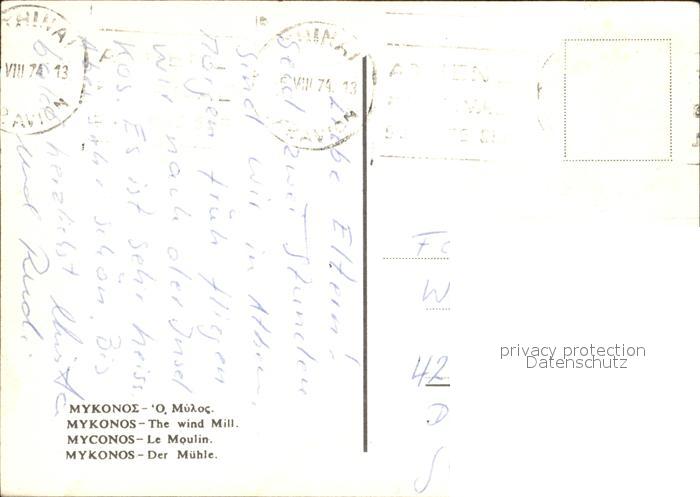 ATHINAI
VIII 74 13
PAR AVION
ATHINAI
VIII 74 13
PAR AVION
Liebe Eltern!
Seit zwei Stunden
sind wir in Athen.
Morgen früh fliegen
wir nach der Insel
Kos. Es ist sehr heiss.
Aber sehr schön. Bis
herzlichst Christa
und Rudi.
42
D
ΜΥΚΟΝΟΣ – Ὁ Μύλος.
MYKONOS – The wind Mill.
MYCONOS – Le Moulin.
MYKONOS – Der Mühle.
privacy protection
Datenschutz